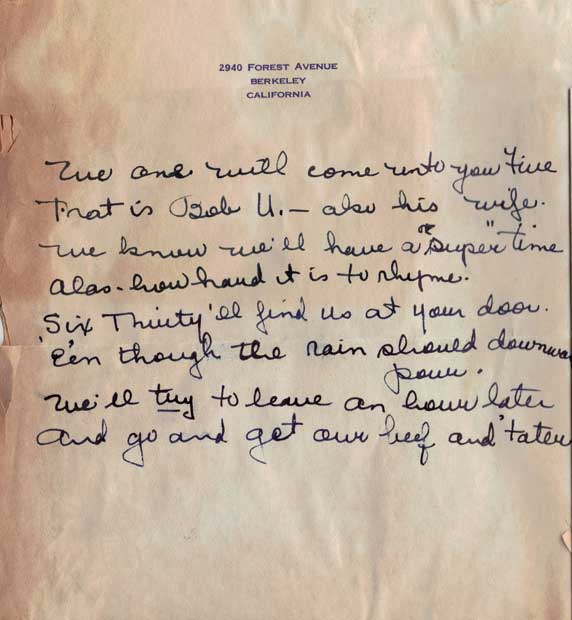 2940 FOREST AVENUE
BERKELEY
CALIFORNIA
We one will come unto you five
That is Bob U. – also his wife.
We know we'll have a "super" time
Alas - how hard it is to rhyme.
Six Thirty'll find us at your door.
E'en though the rain should downwa
pour.
We'll try to leave an hour later
And go and get our beef and 'tater